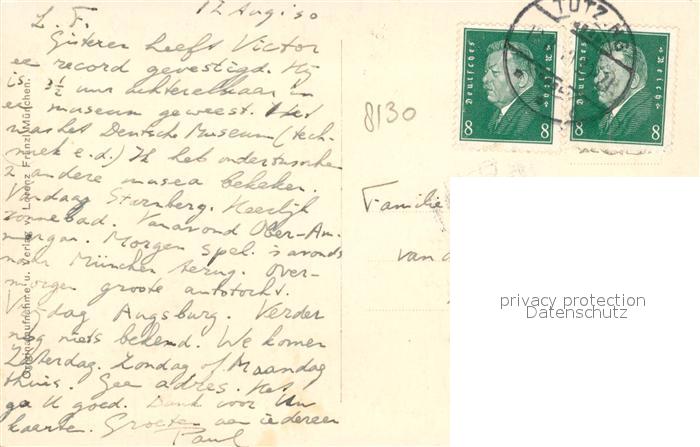 12 Aug. '30
L. F.
Gisteren heeft Victor
een record gevestigd. Hij
is 3½ uur achterelkaar in
een museum geweest. Het
was het Deutsche Museum (tech-
niek e.d.) Ik heb ondertusschen
2 andere musea bekeken.
Vandaag Starnberg. Heerlijk
zonnebad. Vanavond Ober-Am-
mergau. Morgen spel. 's avonds
naar München terug. Over-
morgen groote autotocht.
Vrijdag Augsburg. Verder
nog niets bekend. We komen
Zaterdag, Zondag of Maandag
thuis. Geen adres. Het
ga U goed. Dank voor Uw
kaarten. Groeten aan iedereen
Paul
Originalaufnahme u. Verlag v. Lorenz Fränzl, München.
8130
Deutsches Reich
8 8
Deutsches Reich
8 8
TUTZING
Familie
van
privacy protection
Datenschutz